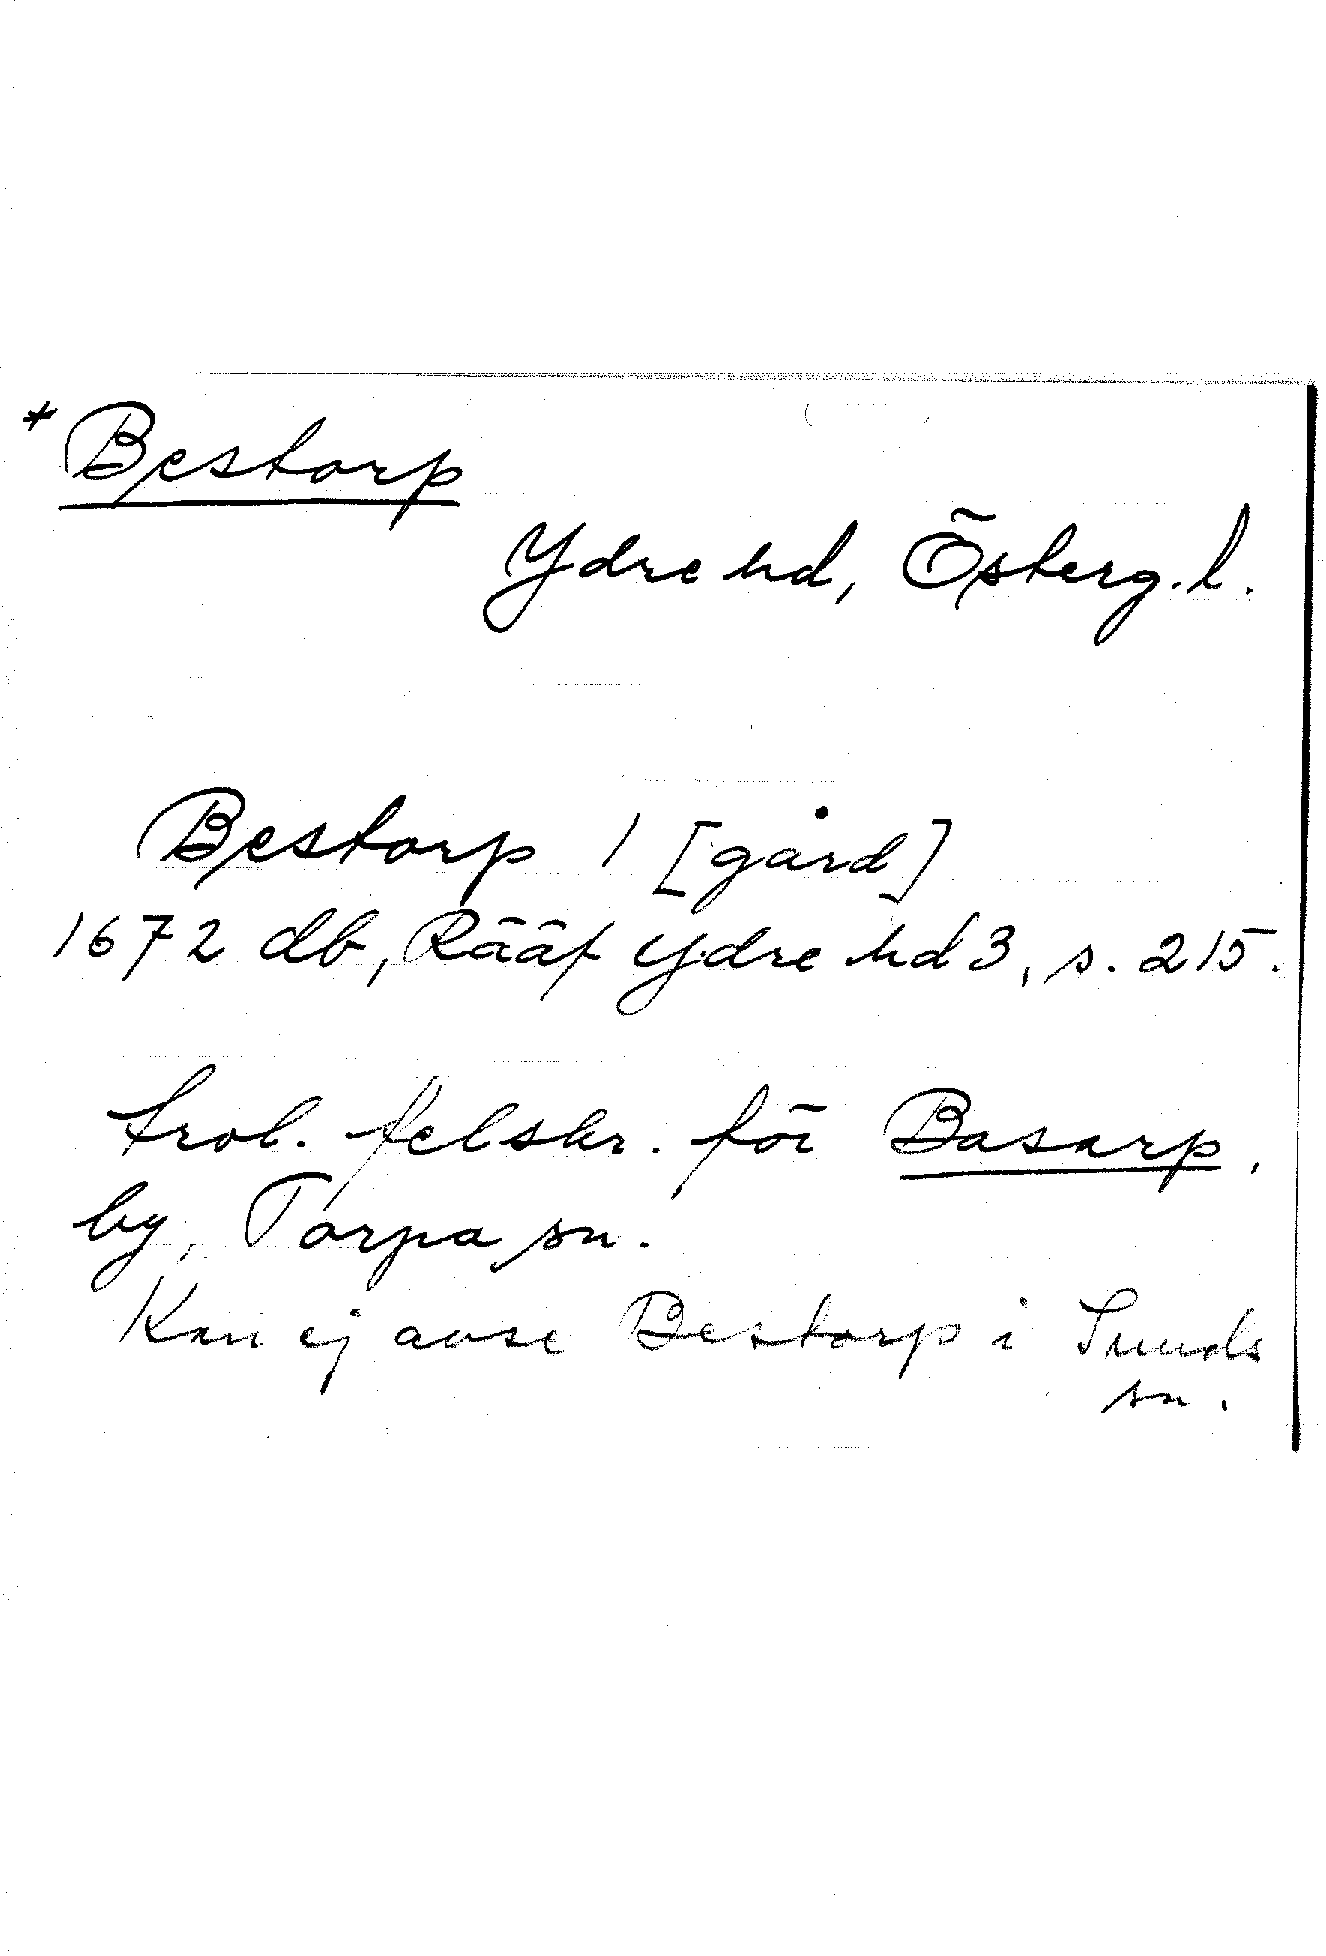 *Bestorp
Ydre hd, Österg. l.
Bestorp 1 [gård]
1672 db, Rääf Ydre hd 3, s. 215.
trol. felskr. för Basarp,
by, Torpa sn.
Kan ej avse Bestorp i Sunds
sn.